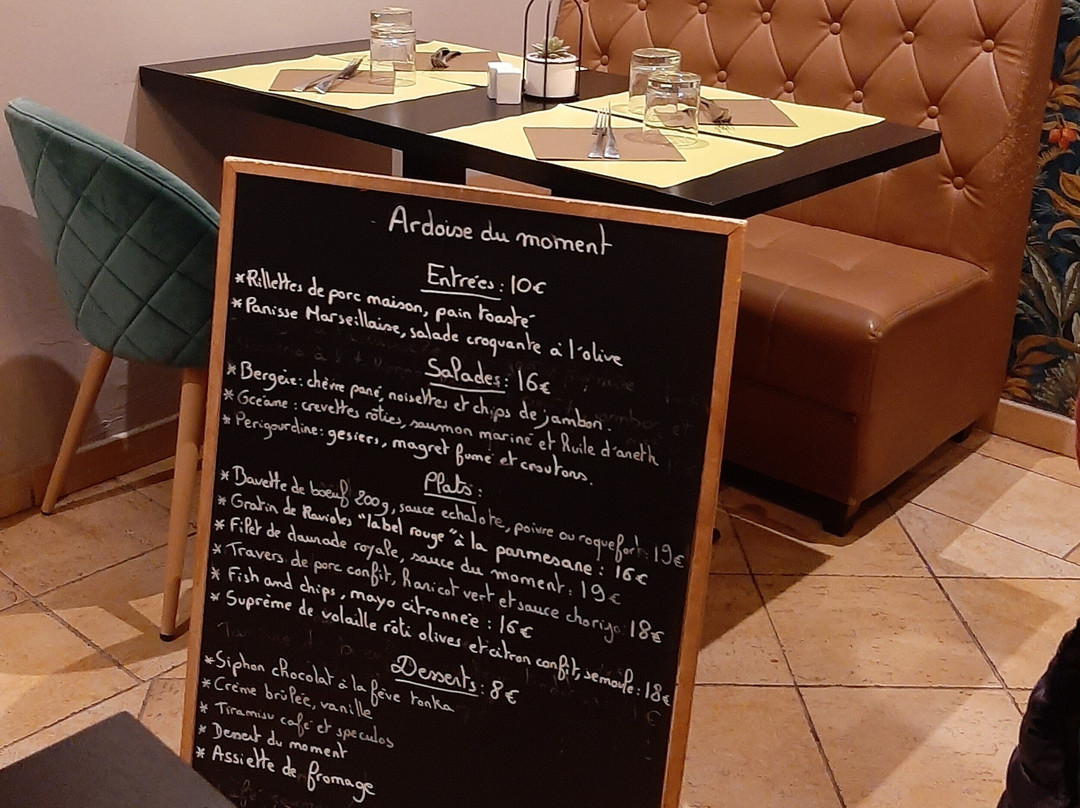 Ardoise du moment
Entrées : 10€
* Rillettes de porc maison, pain toasté
* Panisse Marseillaise, salade croquante à l'olive
Salades : 16€
* Bergère : chèvre pané, noisettes et chips de jambon.
* Océane : crevettes rôties, saumon mariné et Huile d'aneth
* Périgourdine : gesiers, magret fumé et croutons.
Plats :
* Bavette de boeuf 200g, sauce echalote, poivre ou roquefort : 19€
* Gratin de Ravioles "label rouge" à la parmesane : 16€
* Filet de daurade royale, sauce du moment : 19€
* Travers de porc confit, Haricot vert et sauce chorizo : 18€
* Fish and chips, mayo citronnée : 16€
* Suprême de volaille rôti olives et citron confit, semoule : 18€
Desserts : 8€
* Siphon chocolat à la fève tonka
* Crème brûlée, vanille
* Tiramisu café et speculos
* Dessert du moment
* Assiette de fromage